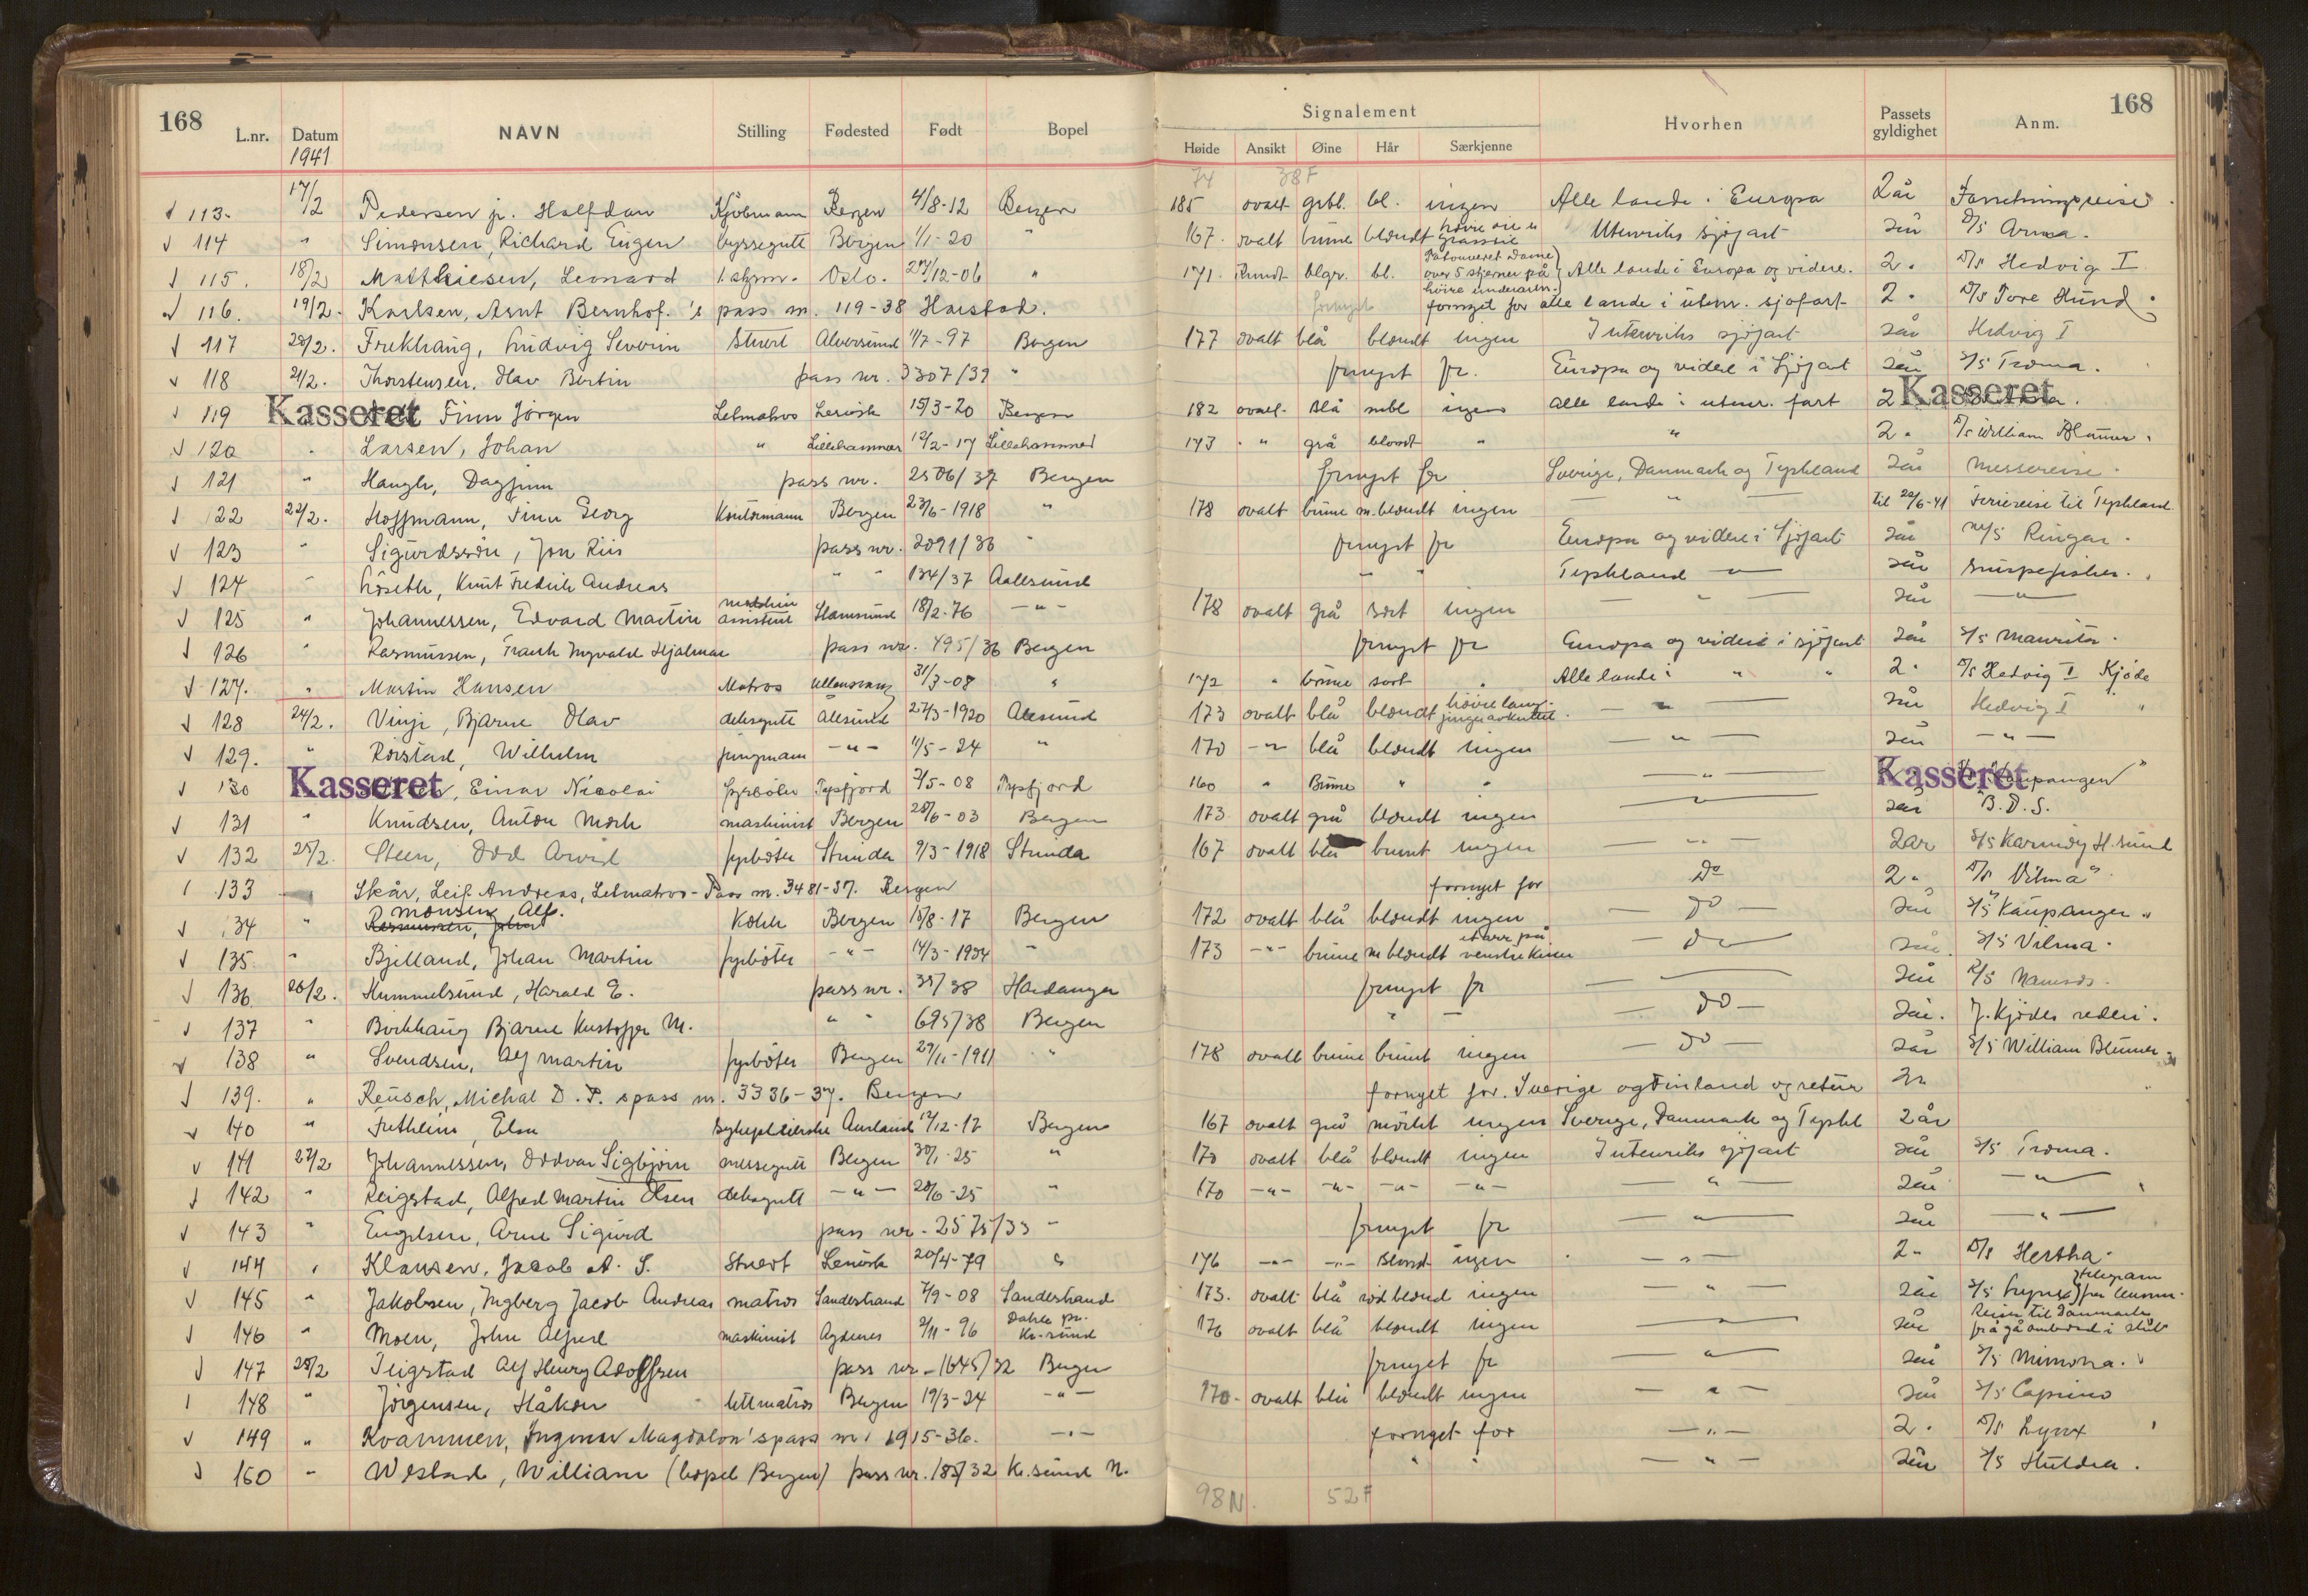 168 L.nr. Datum NAVN Stilling Fødested Født Bopel
1941
Signalement Hvorhen Passets gyldighet Anm. 168
Høide Ansikt Øine Hår Særkjenne
74 38F
113. 17/2 Pedersen jr. Halfdan Kjöbmann Bergen 4/8-12 Bergen 185 ovalt grbl. bl. ingen Alle lande i Europa 2 år Forretningsreise
114 " Simonsen, Richard Eugen byssegutt Bergen 1/1-20 " 167. ovalt brune blondt Utenriks sjöfart 2 år D/S Arna.
115. 18/2 Matthiesen, Leonard Oslo. 27/12-06 " 171. Rundt blgr. bl. Tatoveret Dame over 5 stjerner på höire underarm. Alle lande i Europa og videre. 2. D/S Hedvig I
116. 19/2. Karlsen, Arnt Bernhof.'s pass nr. 119-38 Harstad. fornyet for alle lande i utenr. sjøfart 2. D/S Tore Hund
117 20/2. Frekhaug, Ludvig Severin Stuert Alversund 1/7-97 Bergen 177 ovalt blå blondt ingen Utenriks sjöfart 2 år Hedvig I
118 21/2. Thorstensen, Olav Bertin pass nr. 3307/39 " fornyet for Europa og videre i Sjöfart 2 år S/S Troma.
119 Kasseret Finn Jörgen Letmatros Lervik 15/3-20 Bergen 182 ovalt. Blå mbl ingen Alle lande i utenr. fart 2 Kasseret
120 Larsen, Johan " Lillehammer 12/2-17 Lillehammer 173 " grå blondt " " 2. D/S William Blumer.
121 " Haugh, Dagfinn pass nr. 2506/37 Bergen fornyet for Sverige, Danmark og Tyskland 2 år Messereise.
122 22/2. Hoffmann, Finn Georg Kontormann Bergen 23/6-1918 " 178 ovalt brune m.blondt ingen — " — til 22/6-41 Feriereise til Tyskland
123 " Sigurdsson, Jon Riis pass nr. 2091/36 " fornyet for Europa og videre i Sjöfart 2 år M/S Ringar.
124 " Löseth, Knut Fredrik Andreas " " 134/37 Aalesund " " Tyskland 2 år Snurpefisker.
125 " Johannessen, Edvard Martin maskin assistent Stamsund 18/2-76 — " — 178 ovalt grå sort ingen — " — 2 år — " —
126 " Rasmussen, Frank Ingvald Hjalmar pass nr. 495/36 Bergen fornyet for Europa og videre i sjöfart 2 år S/S Maurita.
127. " Martin Hansen Matros Ullensvang 31/3-08 " 172 " brune sort " Alle lande i " " 2. D/S Hedvig I Kjöde
128 24/2. Vinje, Bjarne Olav deksgutt Ålesund 27/3-1920 Ålesund 173 ovalt blå blondt höire lang- — " — 2 år Hedvig I "
129. " Rörstad, Wilhelm jungmann — " — 11/5-24 " 170 — " — blå blondt ingen — " — 2 år — " —
130 Kasseret, Einar Nicolai fyrböter Tysfjord 7/5-08 Tysfjord 160 " Brune " " — " — Kasseret Kaupangen"
131 " Knudsen, Anton Mork maskinist Bergen 28/6-03 Bergen 173 ovalt grå blondt ingen — " — 2 år B.D.S.
132 25/2. Steen, Odd Arvid fyrböter Strinda 9/3-1918 Strinda 167 ovalt blå brunt ingen — " — 2 år S/S Karmöy H.sund
133 Skår, Leif Andreas, Letmatros - Pass nr. 3481-37. Bergen fornyet for Do 2. D/S Vilma"
134 " Rasmussen, Johan Monsen Alf. Kokk Bergen 15/8-17 Bergen 172 ovalt blå blondt ingen — do — 2 år S/S Kaupanger
135 " Bjelland, Johan Martin fyrböter — " — 14/3-1904 " 173 — " — brune m blondt et arr på venstre kinn — do — 2 år S/S Vilma.
136 26/2. Hummelsund, Harald E. pass nr. 35/38 Hardanger fornyet for — 2 år D/S Namsos.
137 " Borkhaug Bjarne Kristoffer M. " " 695/38 Bergen " — — do — 2 år. J. Kjödes rederi.
138 " Svendsen, Alf Martin fyrböter Bergen 29/11-1911 " 178 ovalt brune brunt ingen — do — 2 år S/S William Blumer
139. " Reusch, Michal D. P.s pass nr. 3336-37. Bergen fornyet for. Sverige og Finland og retur 2.
140 " Fretheim, Else sykepleierske Aurland 17/12-17 Bergen 167 ovalt grå mörkt ingen Sverige, Danmark og Tyskl 2 år
141 27/2 Johannessen, Oddvar Sigbjörn messegutt Bergen 30/1-25 " 170 ovalt blå blondt ingen Utenriks sjöfart 2 år S/S Troma.
142 " Reigstad, Alfred Martin Olsen deksgutt — " — 28/6-25 " 170 — " — — " — — " — — " — — " — 2 år — " —
143 " Engelsen, Arne Sigurd pass nr. 2575/33 " fornyet for — " — 2 år — " —
144 " Klausen, Jacob A. S. Stuert Lervik 20/4-79 " 176 — " — — " — Blondt ingen — " — 2. D/S Hertha.
145 " Jakobsen, Ingberg Jacob Andreas matros Sandestrand 7/9-08 Sandestrand 173. ovalt blå rödblond ingen — " — 2 år S/S Lynx telegram fra
146 " Moen, John Alfred maskinist Agdenes 2/11-96 Dahle pr. Kr.sund 176 ovalt blå blondt ingen — " — 2 år Reiser til Danmark for å gå ombord i skib
147 28/2 Teigstad Alf Henry Adolfsen pass nr. 1645/32 Bergen fornyet for — " — 2 år S/S Mimona.
148 " Jörgensen, Håkon lettmatros Bergen 19/3-24 — " — 170. ovalt blå blondt ingen — " — 2 år S/S Capino
149 " Kvammen, Ingmar Magdalon's pass nr. 1915-36. — " — fornyet for — " — 2. D/S Lynx
150 " Westad, William (bopel Bergen) pass nr. 185/32 Kr.sund N. " " — " — 2 år S/S Huldra.
98N. 52F